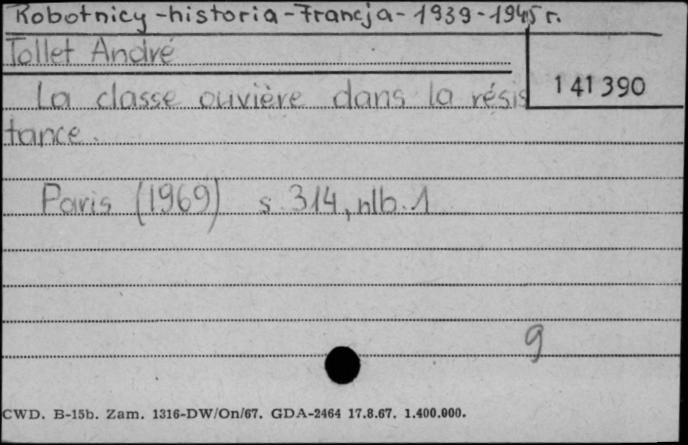 Robotnicy - historia - Francja - 1939 - 1945 r.
Tollet André
141390
La classe ouvière dans la résis
tance.
Paris (1969) s. 314, nlb. 1
9
CWD. B-15b. Zam. 1316-DW/On/67. GDA-2464 17.8.67. 1.400.000.